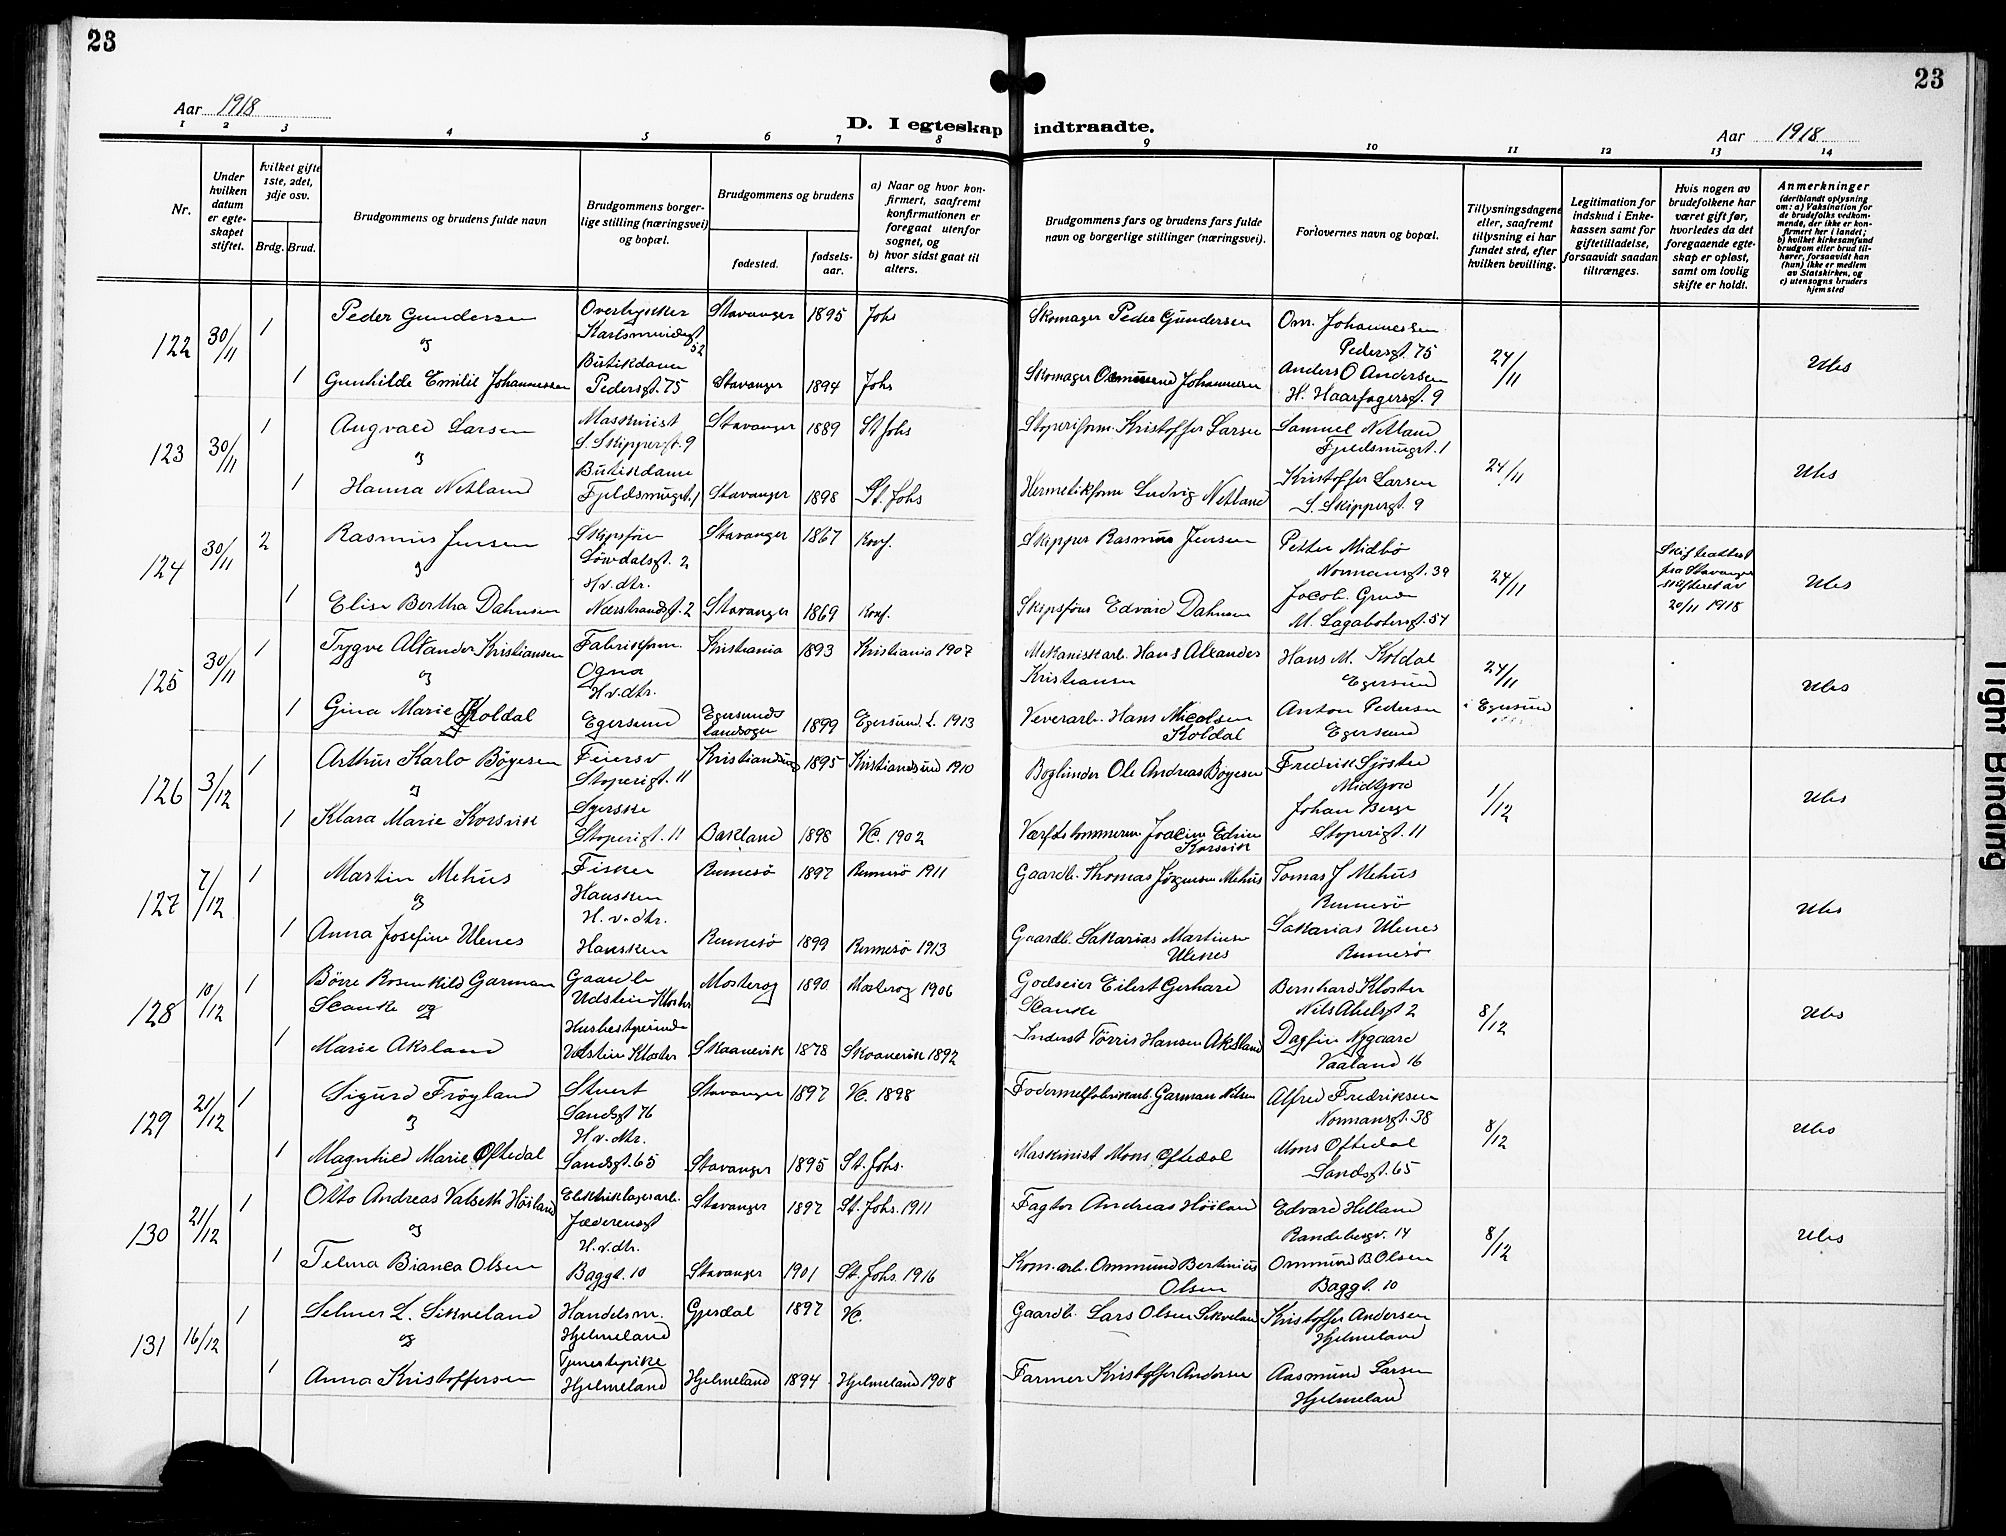 23
23
Aar 1918
D. I egteskap indtraadte.
Aar 1918
1 2 3 4 5 6 7 8 9 10 11 12 13 14
Nr.
Under hvilken datum er egteskapet stiftet.
hvilket gifte 1ste, 2det, 3dje osv.
Brdg. Brud.
Brudgommens og brudens fulde navn
Brudgommens borgerlige stilling (næringsvei) og bopæl.
Brudgommens og brudens
fødested.
fødselsaar.
a) Naar og hvor konfirmert, saafremt konfirmationen er foregaat utenfor sognet, og
b) hvor sidst gaat til alters.
Brudgommens fars og brudens fars fulde navn og borgerlige stillinger (næringsvei).
Forlovernes navn og bopæl.
Tillysningsdagene eller, saafremt tillysning ei har fundet sted, efter hvilken bevilling.
Legitimation for indskud i Enkekassen samt for giftetilladelse, forsaavidt saadan tiltrænges.
Hvis nogen av brudefolkene har været gift før, hvorledes da det foregaaende egteskap er opløst, samt om lovlig skifte er holdt.
Anmerkninger
(deriblandt oplysning om: a) Vaksination for de brudefolks vedkommende, der ikke er konfirmert her i landet; b) hvilket kirkesamfund brudgom eller brud tilhører, forsaavidt han (hun) ikke er medlem av Statskirken, og c) utensogns bruders hjemsted
122 30/11 1 Peder Gundersen Stavanger 1895 Johs Skomager Peder Gundersen Om. Johannessen
og Karlsmindegt. 52 Pedersgt. 75 24/11
Butikdame Anders O Andersen
1 Gunhilde Emilie Johannessen Pedersgt. 75 Stavanger 1894 Johs Skomager Osmund Johannesen H. Haarfagersgt. 9
123 30/11 1 Augvald Larsen Maskinist Stavanger 1889 St Johs Kristoffer Larsen Samuel Netland
og S. Skippergt. 9 Fjeldsmuget. 1 24/11
Butikdame Kristoffer Larsen
1 Hanna Netland Fjeldsmuget. 1 Stavanger 1898 St. Johs Ludvig Netland S. Skippergt. 9
124 30/11 2 Rasmus Jensen Skipsfører Stavanger 1867 Konf. Skipper Rasmus Jensen Petter Midbö Skifteattest
og Lövdalsgt. 2 Normansgt. 39 24/11 fra Stavanger
H.v.dtr. Jacob Grude skifteret av
1 Elise Bertha Dahnsen Nærstrandsgt. 2 Stavanger 1869 Konf. Skipsförer Edvard Dahnsen M. Lagabøtersgt. 54 20/11 1918
125 30/11 1 Trygve Alxander Kristiansen Fabrikform. Kristiania 1893 Kristiania 1907 Mekaniskarb. Hans Alxander Hans M. Koldal
og Ogna Kristiansen Egersund 24/11
H.v.dtr.
1 Gina Marie Koldal Egersund Egersunds Landsogn 1899 Egersund L. 1913 Veverarb. Hans Micalsen Koldal Anton Pedersen Egersund i Egersund
126 3/12 1 Arthur Karlo Böyesen Stoperigt. 11 Kristiansund 1895 Kristiansund 1910 Ole Andreas Böyesen Fredrik Sjöstre
og Syerske Johan Berge 1/12
1 Klara Marie Korsvik Stoperigt. 11 Bakland 1898 Vc. 1902 Værftstømmerm. Joacim Edvin Korsvik Stoperigt. 11
127 7/12 1 Martin Mehus Fisker Rennesö 1897 Rennesö 1911 Gaardb. Thomas Jörgensen Mehus Tomas J Mehus
og Hausken Rennesö
H.v.dtr.
1 Anna Josefine Ulenes Hausken Rennesö 1899 Rennesö 1913 Gaardb. Sakarias Martinsen Ulenes Sakarias Ulenes Rennesö
128 10/12 1 Börre Rosenkild Garman Gaardb. Mosterog 1890 Mosterog 1906 Godseier Eilert Gerhard Bernhard Kloster
Scanke og Udstein Kloster Scanke Nils Abelsgt 2 8/12
Husbestyrerinde
1 Marie Aksland Udstein Kloster Skaanevik 1878 Skaanevik 1892 Inderst Törris Hansen Aksland Dagfin Nygaard Vaaland 16
129 21/12 1 Sigurd Fröyland Stuert Stavanger 1897 Vc. 1898 Fodermelfabrikarb. Garman Nilsen Alfred Fredriksen
og Sandsgt 76 Normansgt. 38 8/12
H.v.dtr.
1 Magnhild Marie Oftedal Sandsgt. 65 Stavanger 1895 St. Johs. Maskinist Mons Oftedal Mons Oftedal Sandsgt. 65
130 21/12 1 Otto Andreas Valseth Höiland Elektriklagerarb. Stavanger 1897 St. Johs. 1911 Fagtor Andreas Höiland Edvard Helland
og Jæderensgt Randebergv. 14 8/12
H.v.dtr.
1 Telma Bianca Olsen Baggt. 10 Stavanger 1901 St. Johs. 1916 Kom. arb. Ommund Bertinius Olsen Ommund B. Olsen Baggt. 10
131 16/12 1 Selmer L. Sikveland Handelsm. Gjesdal 1897 Vc. Gaardb. Lars Olsen Sikveland Kristoffer Andersen
og Hjelmeland Hjelmeland
Tjenestepike
1 Anna Kristoffersen Hjelmeland Hjelmeland 1894 Hjelmeland 1908 Farmer Kristoffer Andersen Aasmund Larsen Hjelmeland
Tight Binding